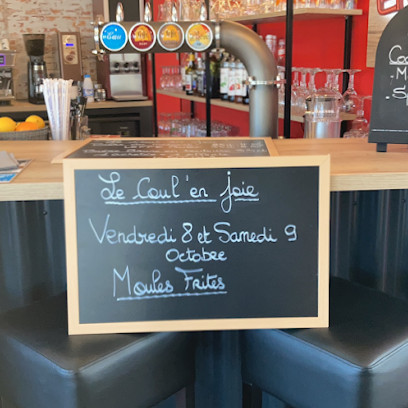 Le Coul'en Joie
Vendredi 8 et Samedi 9
Octobre
Moules Frites